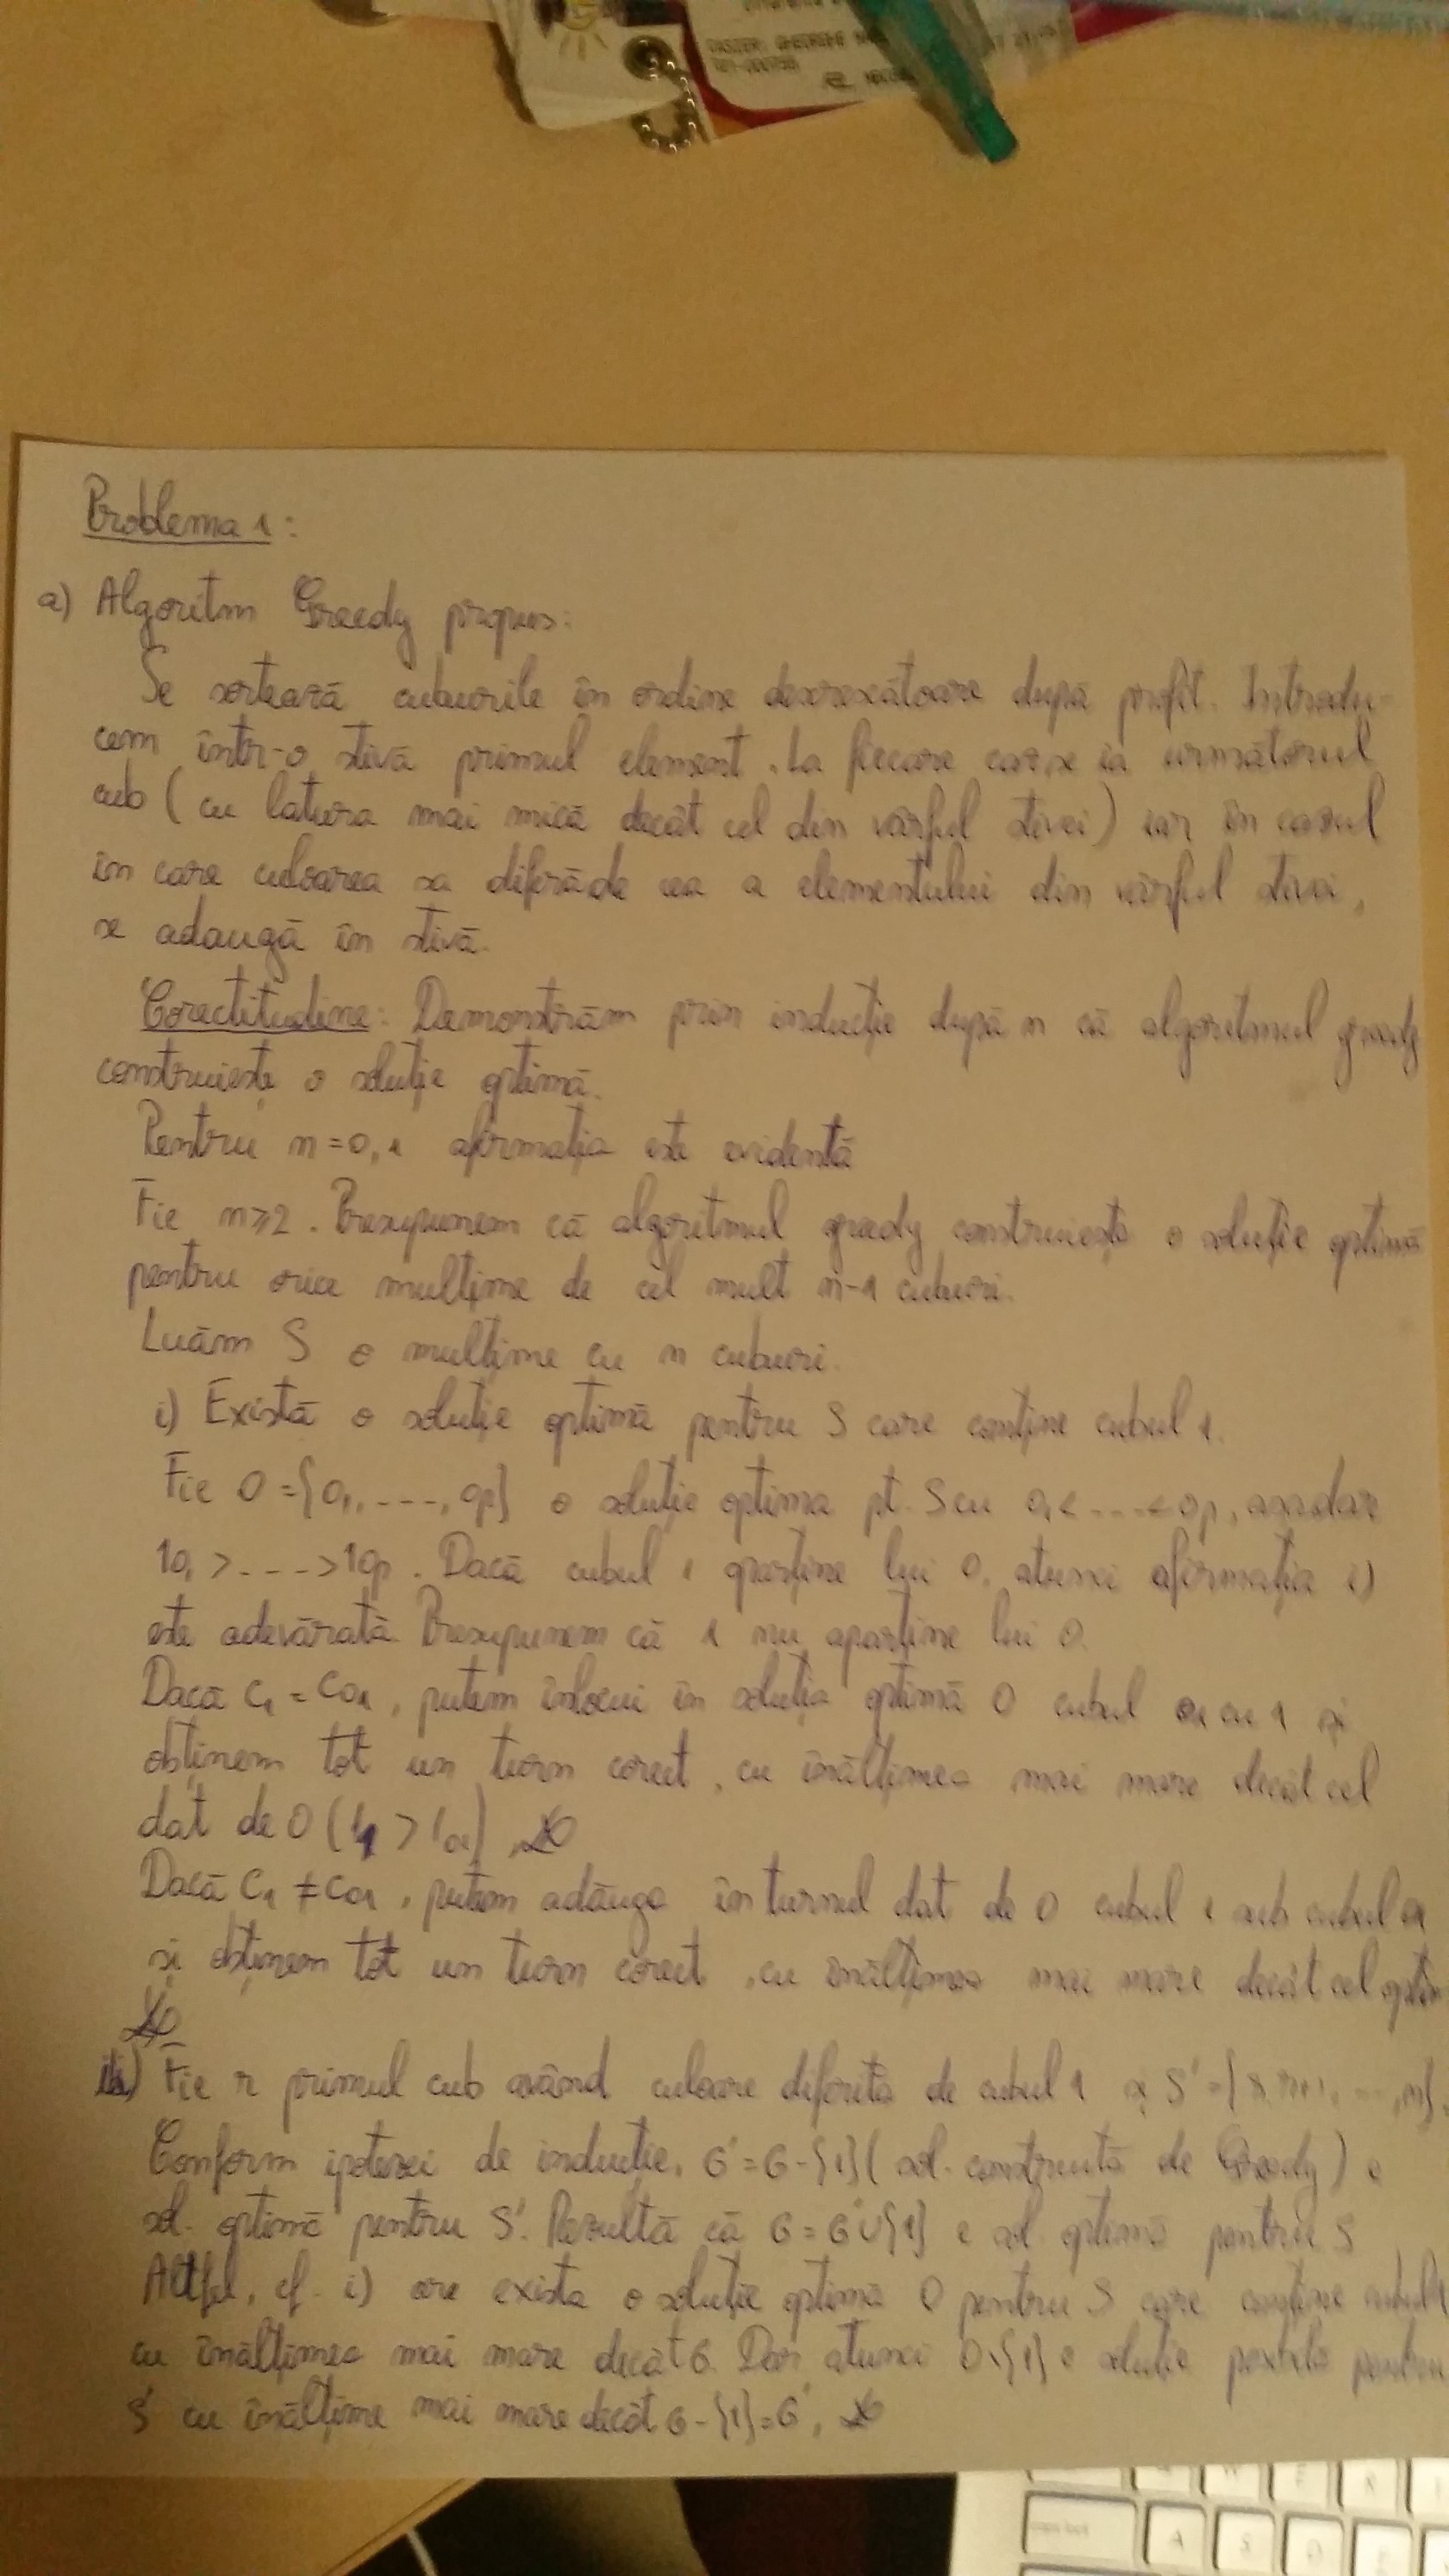 CASIER: GHEORGHE
Problema 1:
a) Algoritm Greedy propus:
Se sortează cuburile în ordine descrescătoare după profit. Introdu-
cem într-o stivă primul element. La fiecare pas se ia următorul
cub (cu latura mai mică decât cel din vârful stivei) iar în cazul
în care culoarea sa diferă de cea a elementului din vârful stivei,
se adaugă în stivă.
Corectitudine: Demonstrăm prin inducție după n că algoritmul greedy
construiește o soluție optimă.
Pentru n=0,1 afirmația este evidentă
Fie n≥2. Presupunem că algoritmul greedy construiește o soluție optimă
pentru orice mulțime de cel mult n-1 cuburi.
Luăm S o mulțime cu n cuburi.
i) Există o soluție optimă pentru S care conține cubul 1.
Fie O={o1,----,op} o soluție optima pt. S cu o1<....<op, așadar
lo1>.--->lop. Dacă cubul 1 aparține lui O, atunci afirmația i)
este adevărată. Presupunem că 1 nu aparține lui O.
Dacă c1=co1, putem înlocui în soluția optimă O cubul o1 cu 1 și
obținem tot un turn corect, cu înălțimea mai mare decât cel
dat de O (l1>lo1),
Dacă c1≠co1, putem adăuga în turnul dat de O cubul 1 sub cubul o1
și obținem tot un turn corect, cu înălțimea mai mare decât cel optim
ii) Fie r primul cub având culoare diferită de cubul 1 și S'={r,r+1,...,n}.
Conform ipotezei de inducție, G'=G-{1} (sol. construită de Greedy) e
sol. optimă pentru S'. Rezultă că G=G'∪{1} e sol. optimă pentru S
Altfel, cf. i) ar exista o soluție optimă O pentru S care conține cubul 1
cu înălțimea mai mare decât G. Dar atunci O\{1} e soluție posibilă pentru
S' cu înălțime mai mare decât G-{1}=G',
A
S
D